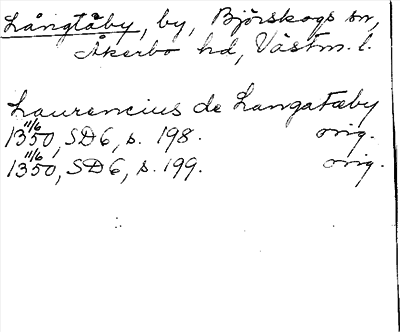 Långtäby, by, Björskogs sn,
Åkerbo hd, Västm. l.
Laurencius de Langatæby
11/6 1350, SD6, s. 198. orig.
11/6 1350, SD6, s. 199. orig.